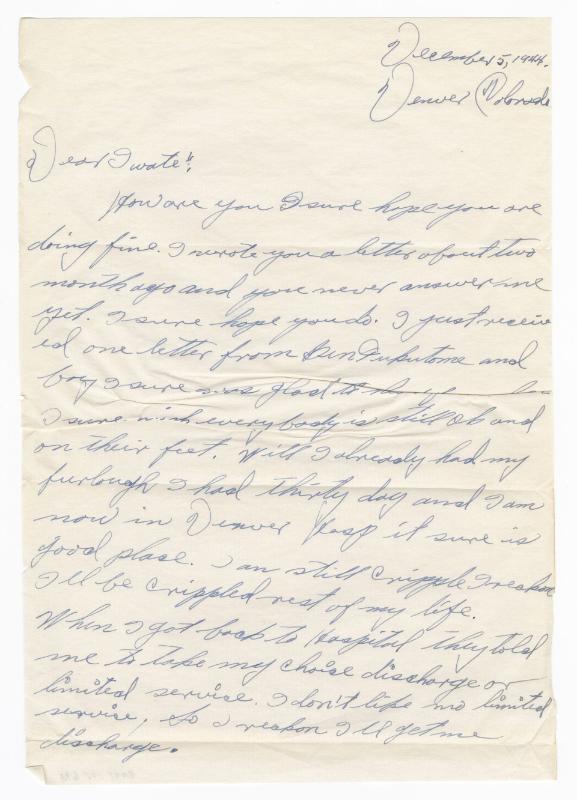 December 5, 1944.
Denver Colorado
Dear Iwate":
How are you I sure hope you are
doing fine. I wrote you a letter about two
month ago and you never answer me
yet. I sure hope you do. I just receiv
ed one letter from Ben Fukutome and
boy I sure was glad to
I sure wish everybody is still Ok and
on their feet. Will I already had my
furlough I had thirty day and I am
now in Denver Hosp it sure is
good place. I am still cripple I reckon
I'll be crippled rest of my life.
When I got back to Hospital they told
me to take my choise discharge or
limited service. I don't like no limited
service, So I reckon I'll get me
discharge.